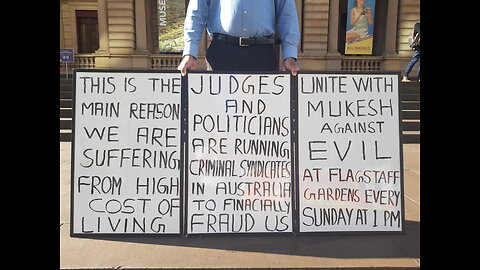 MUSE
THIS IS THE
MAIN REASON
WE ARE
SUFFERING
FROM HIGH
COST OF
LIVING
JUDGES
AND
POLITICIANS
ARE RUNNING
CRIMINAL SYNDICATES
IN AUSTRALIA
TO FINACIALLY
FRAUD US
UNITE WITH
MUKESH
AGAINST
EVIL
AT FLAGSTAFF
GARDENS EVERY
SUNDAY AT 1 PM